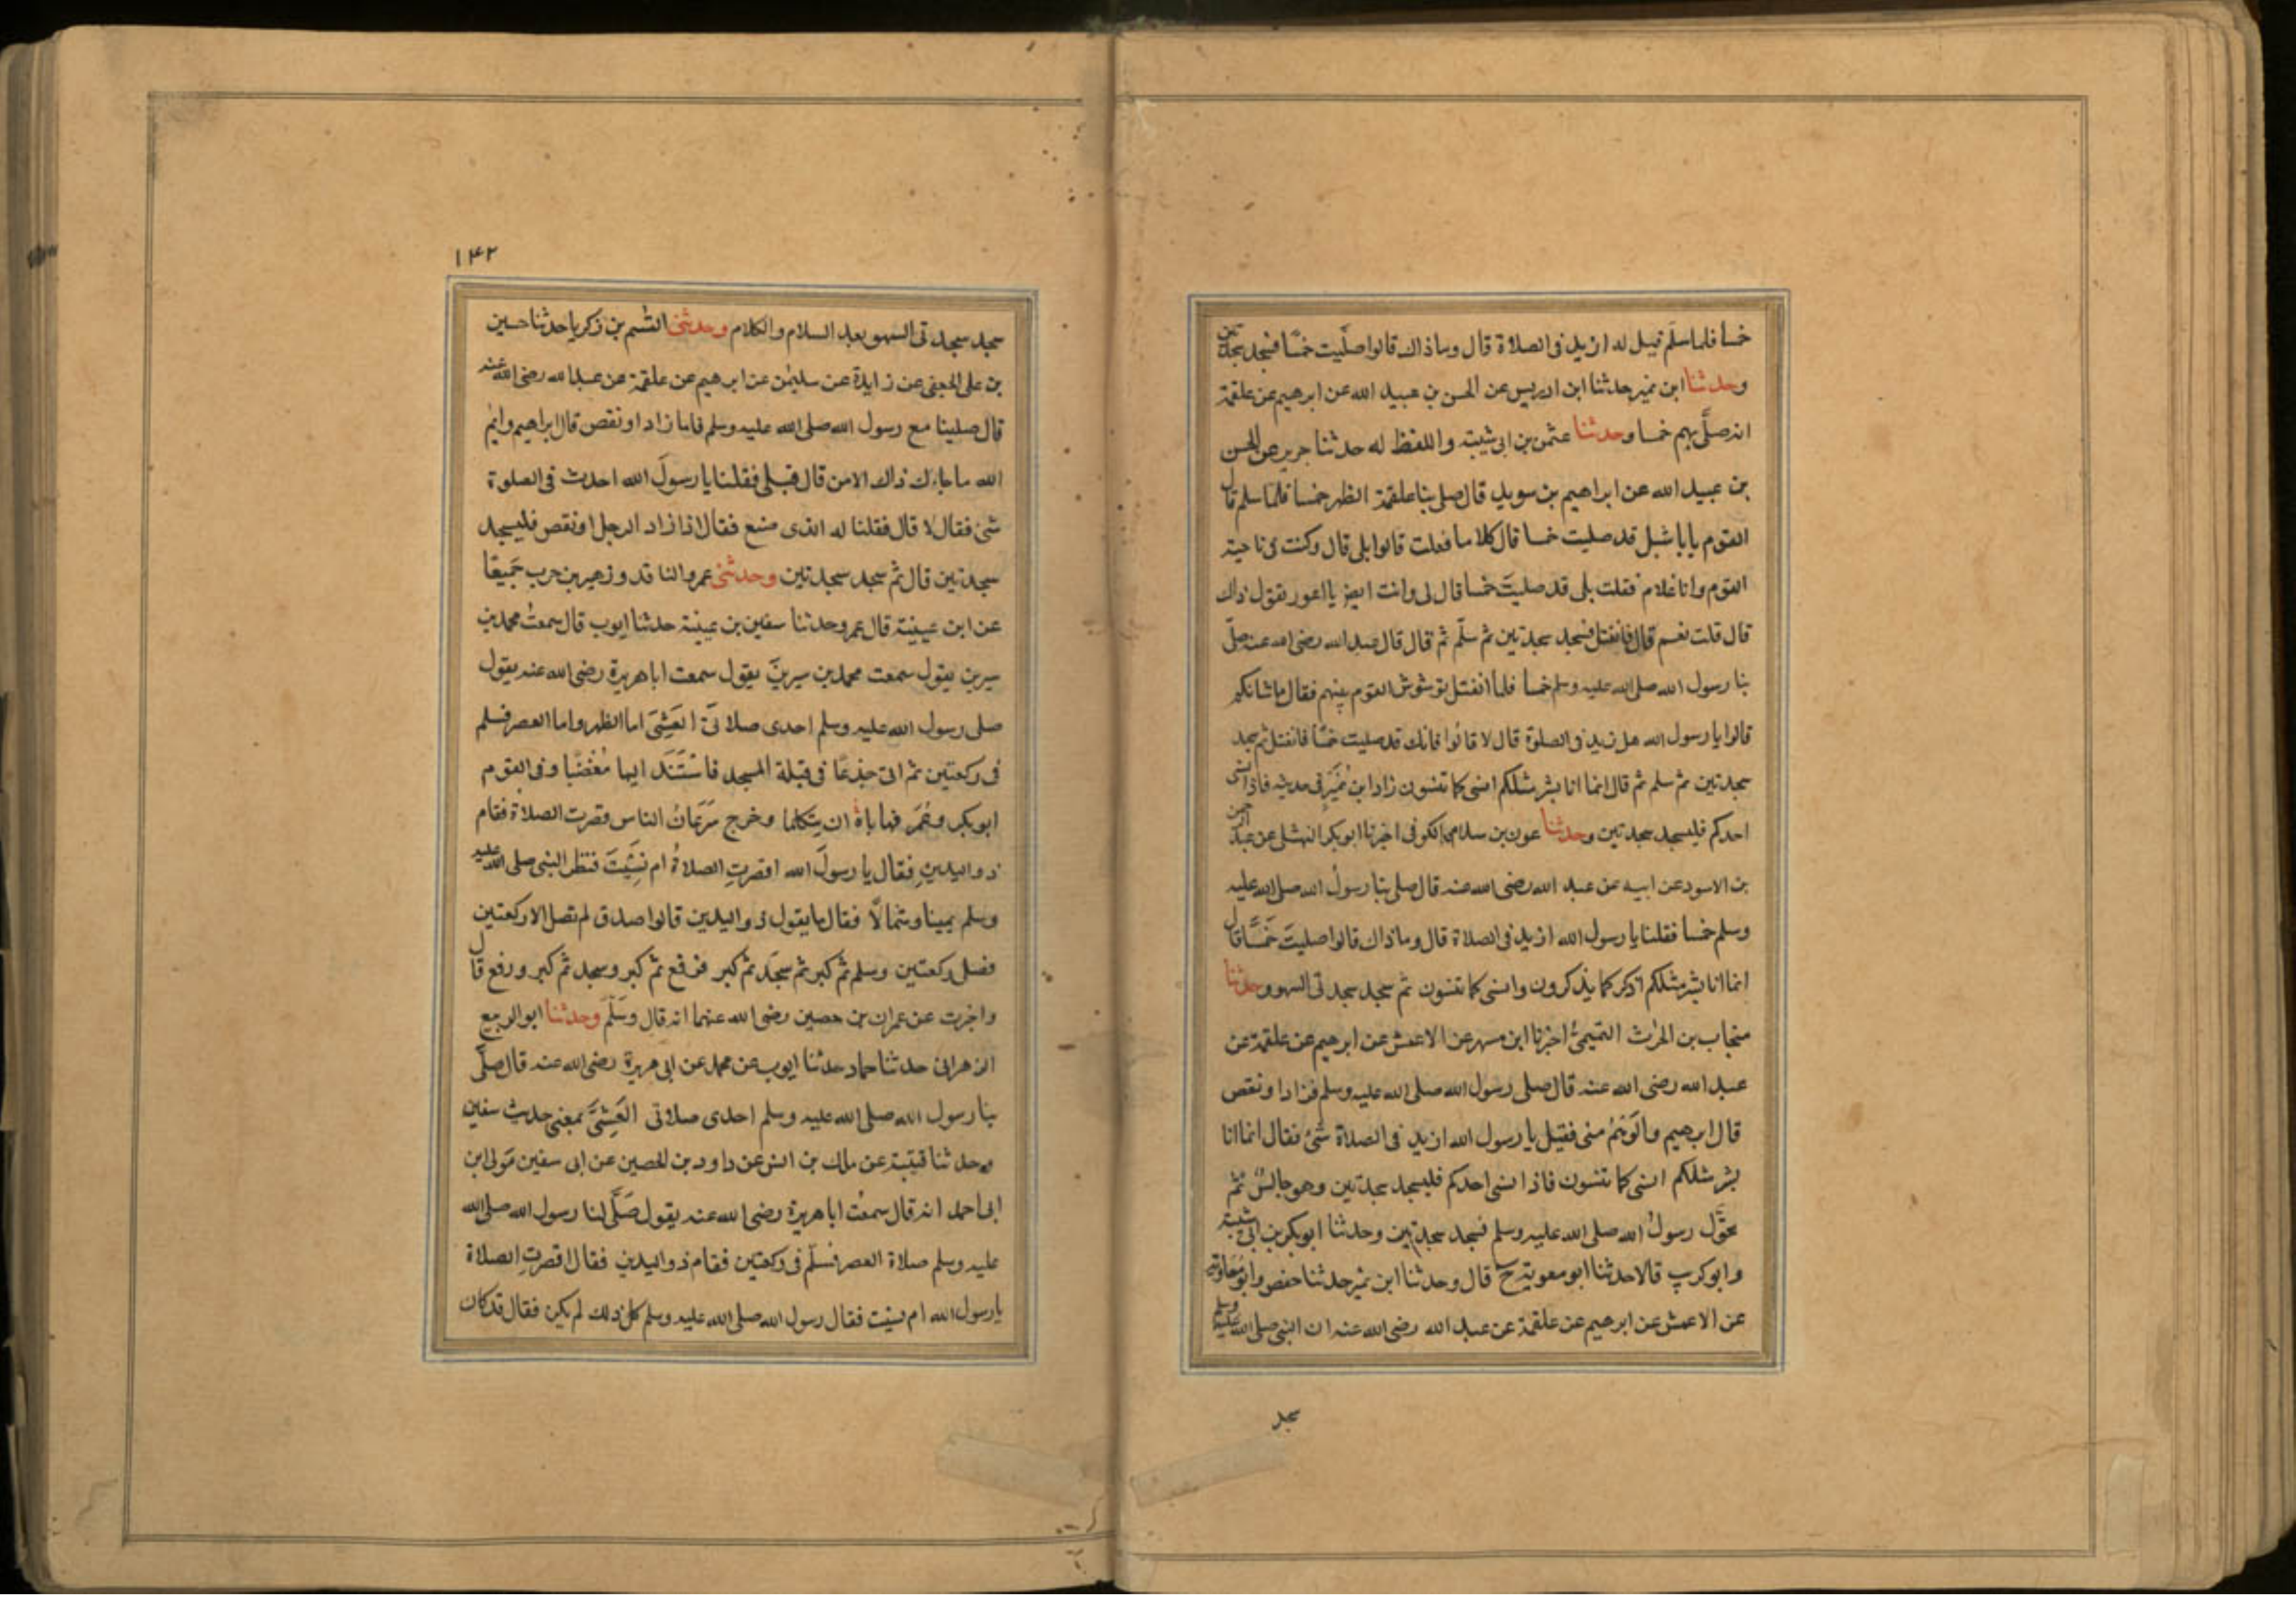 خمسا فلما سلم قيل له ازيد فى الصلاة قال وما ذاك قالوا صلّيت خمسًا فسجد سجدتين
وحدثنا ابن نمير حدثنا ابن ادريس عن الحسن بن عبيد الله عن ابرهيم عن علقمة
انه صلّى بهم خمسا وحدثنا عثمن بن ابى شيبة واللفظ له حدثنا جرير عن الحسن
بن عبيد الله عن ابراهيم بن سويد قال صلى بنا علقمة الظهر خمسا فلما سلم قال
القوم يا با شبل قد صليت خمسا قال كلا ما فعلت قالوا بلى قال وكنت فى ناحية
القوم وانا غلام فقلت بلى قد صليتَ خمسا قال لى وانت ايضا يا اعور تقول ذاك
قال قلت نعم قال فانفتل فسجد سجدتين ثم سلّم ثم قال قال عبد الله رضى الله عنه صلّى
بنا رسول الله صلى الله عليه وسلم خمسا فلما انفتل توشوش القوم بينهم فقال ما شانكم
قالوا يا رسول الله هل زيد فى الصلوة قال لا قالوا فانك قد صليت خمسًا فانفتل ثم سجد
سجدتين ثم سلم ثم قال انما انا بشر مثلكم انسى كما تنسون زاد ابن نُمَيْرٍ فى حديثه فاذا نسى
احدكم فليسجد سجدتين وحدثنا عون بن سلام الكوفى اخبرنا ابو بكر النهشلى عن عبد الرحمن
بن الاسود عن ابيه عن عبد الله رضى الله عنه قال صلى بنا رسولُ الله صلى الله عليه
وسلم خمسا فقلنا يا رسول الله ازيد فى الصلاة قال وما ذاك قالوا صليتَ خَمْسًا قال
انما انا بشر مثلكم اذكر كما يذكرون وانسى كما تنسون ثم سجد سجدتى السهو وحدثنا
منجاب بن الحٰرث التميمىُّ اخبرنا ابن مسهر عن الاعمش عن ابرهيم عن علقمة عن
عبد الله رضى الله عنه قال صلى رسول الله صلى الله عليه وسلم فزاد او نقص
قال ابرهيم والوَهْمُ منى فقيل يا رسول الله ازيد فى الصلاة شئ فقال انما انا
بشر مثلكم انسى كما تنسون فاذا نسى احدكم فليسجد سجدتين وهو جالسٌ ثم
تحوَّل رسولُ الله صلى الله عليه وسلم فسجد سجدتين وحدثنا ابو بكر بن ابى شيبة
وابو كريب قالا حدثنا ابو معوية ح قال وحدثنا ابن نمير حدثنا حفص وابو مُعاوية
عن الاعمش عن ابرهيم عن علقمة عن عبد الله رضى الله عنه ان النبى صلى الله عليه وسلم
سجد
١٤٢
سجد سجدتى السهو بعد السلام والكلام وحدثنى القٰسم بن زكريا حدثنا حسين
بن على الجعفى عن زايدة عن سليمٰن عن ابرهيم عن علقمة عن عبد الله رضى الله عنه
قال صلينا مع رسول الله صلى الله عليه وسلم فاما زاد او نقص قال ابراهيم وايم
الله ما جاء ذاك الا من قال قبلى فقلنا يا رسولَ الله احدث فى الصلوة
شئ فقال لا قال فقلنا له الذى صنع فقال اذا زاد الرجل او نقص فليسجد
سجدتين قال ثم سجد سجدتين وحدثنى عمرو الناقد وزهير بن حرب جَميعًا
عن ابن عيينة قال عمرو حدثنا سفين بن عيينة حدثنا ايوب قال سمعتُ محمد بن
سيرين يقول سمعت محمد بن سيرينَ يقول سمعت ابا هريرة رضى الله عنه يقول
صلى رسول الله عليه وسلم احدى صلاتَىِ العَشِىِّ اما الظهر واما العصر فسلم
فى ركعتين ثم اتى جِذعًا فى قبلة المسجد فاسْتَنَد اليها مُغْضَبًا وفى القوم
ابو بكر وعُمَر فهاباهُ ان يتكلما وخرج سَرَعانُ الناس قصرت الصلاة فقام
ذو اليدين فقال يا رسولَ الله اقصرتِ الصلاةُ ام نَسِيتَ فنظر النبى صلى الله عليه
وسلم يمينا وشمالًا فقال ما يقول ذو اليدين قالوا صدق لم تصل الا ركعتين
فصلى ركعتين وسلم ثم كبر ثم سجَد ثم كبر فرفع ثم كبر وسجد ثم كبر ورفع قال
واخبرت عن عمران بن حصين رضى الله عنهما انه قال وسَلَّمَ وحدثنا ابو الربيع
الزهرانى حدثنا حماد حدثنا ايوب عن محمد عن ابى هريرة رضى الله عنه قال صلّى
بنا رسول الله صلى الله عليه وسلم احدى صلاتى العَشِىِّ بمعنى حديث سفين
وحدثنا قتيبة عن مالك بن انس عن داود بن الحصين عن ابى سفين مَولى ابن
ابى احمد انه قال سمعْت ابا هريرة رضى الله عنه يقول صَلَّى لنا رسول الله صلى الله
عليه وسلم صلاة العصر فسلّم فى ركعتين فقام ذو اليدين فقال اقصرتِ الصلاة
يا رسول الله ام نسيت فقال رسول الله صلى الله عليه وسلم كل ذلك لم يكن فقال قد كان